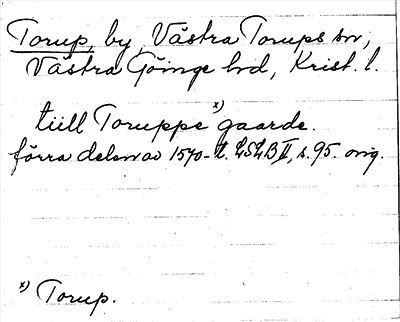 Torup, by, Västra Torups sn,
Västra Göinge hd, Krist. l.
tiill Toruppe x) gaarde.
förra delen av 1570-t. LSLB II, s. 95. orig.
x) Torup.